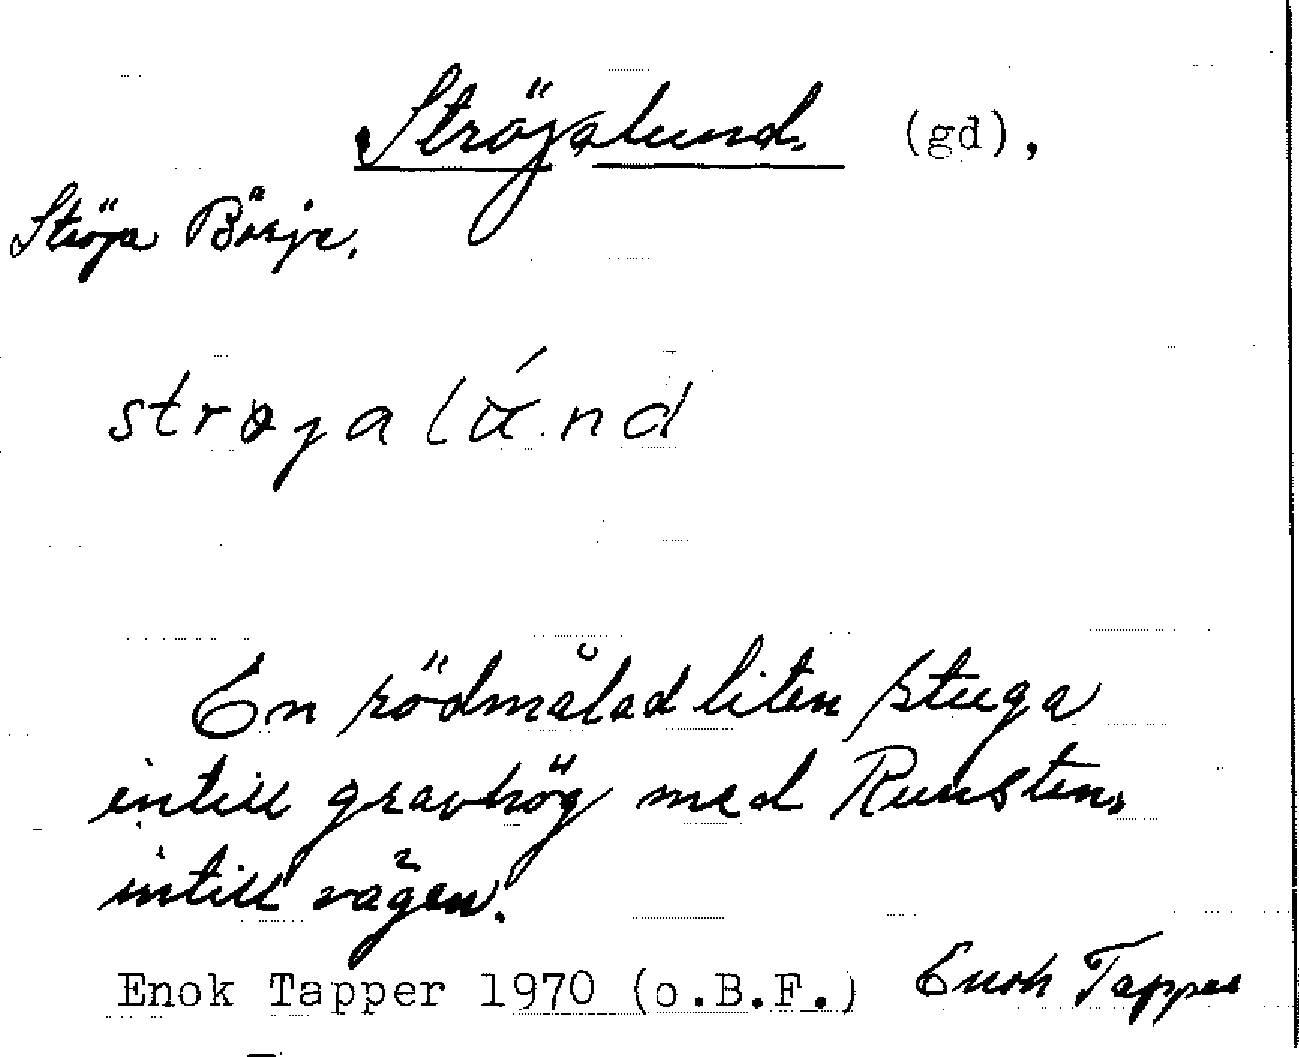 Ströjalund. (gd),
Ströja Börje.
strøjalú.nd
En rödmålad liten stuga
intill gravhög med Runsten,
intill vägen.
Enok Tapper 1970 (o.B.F.) Enok Tapper